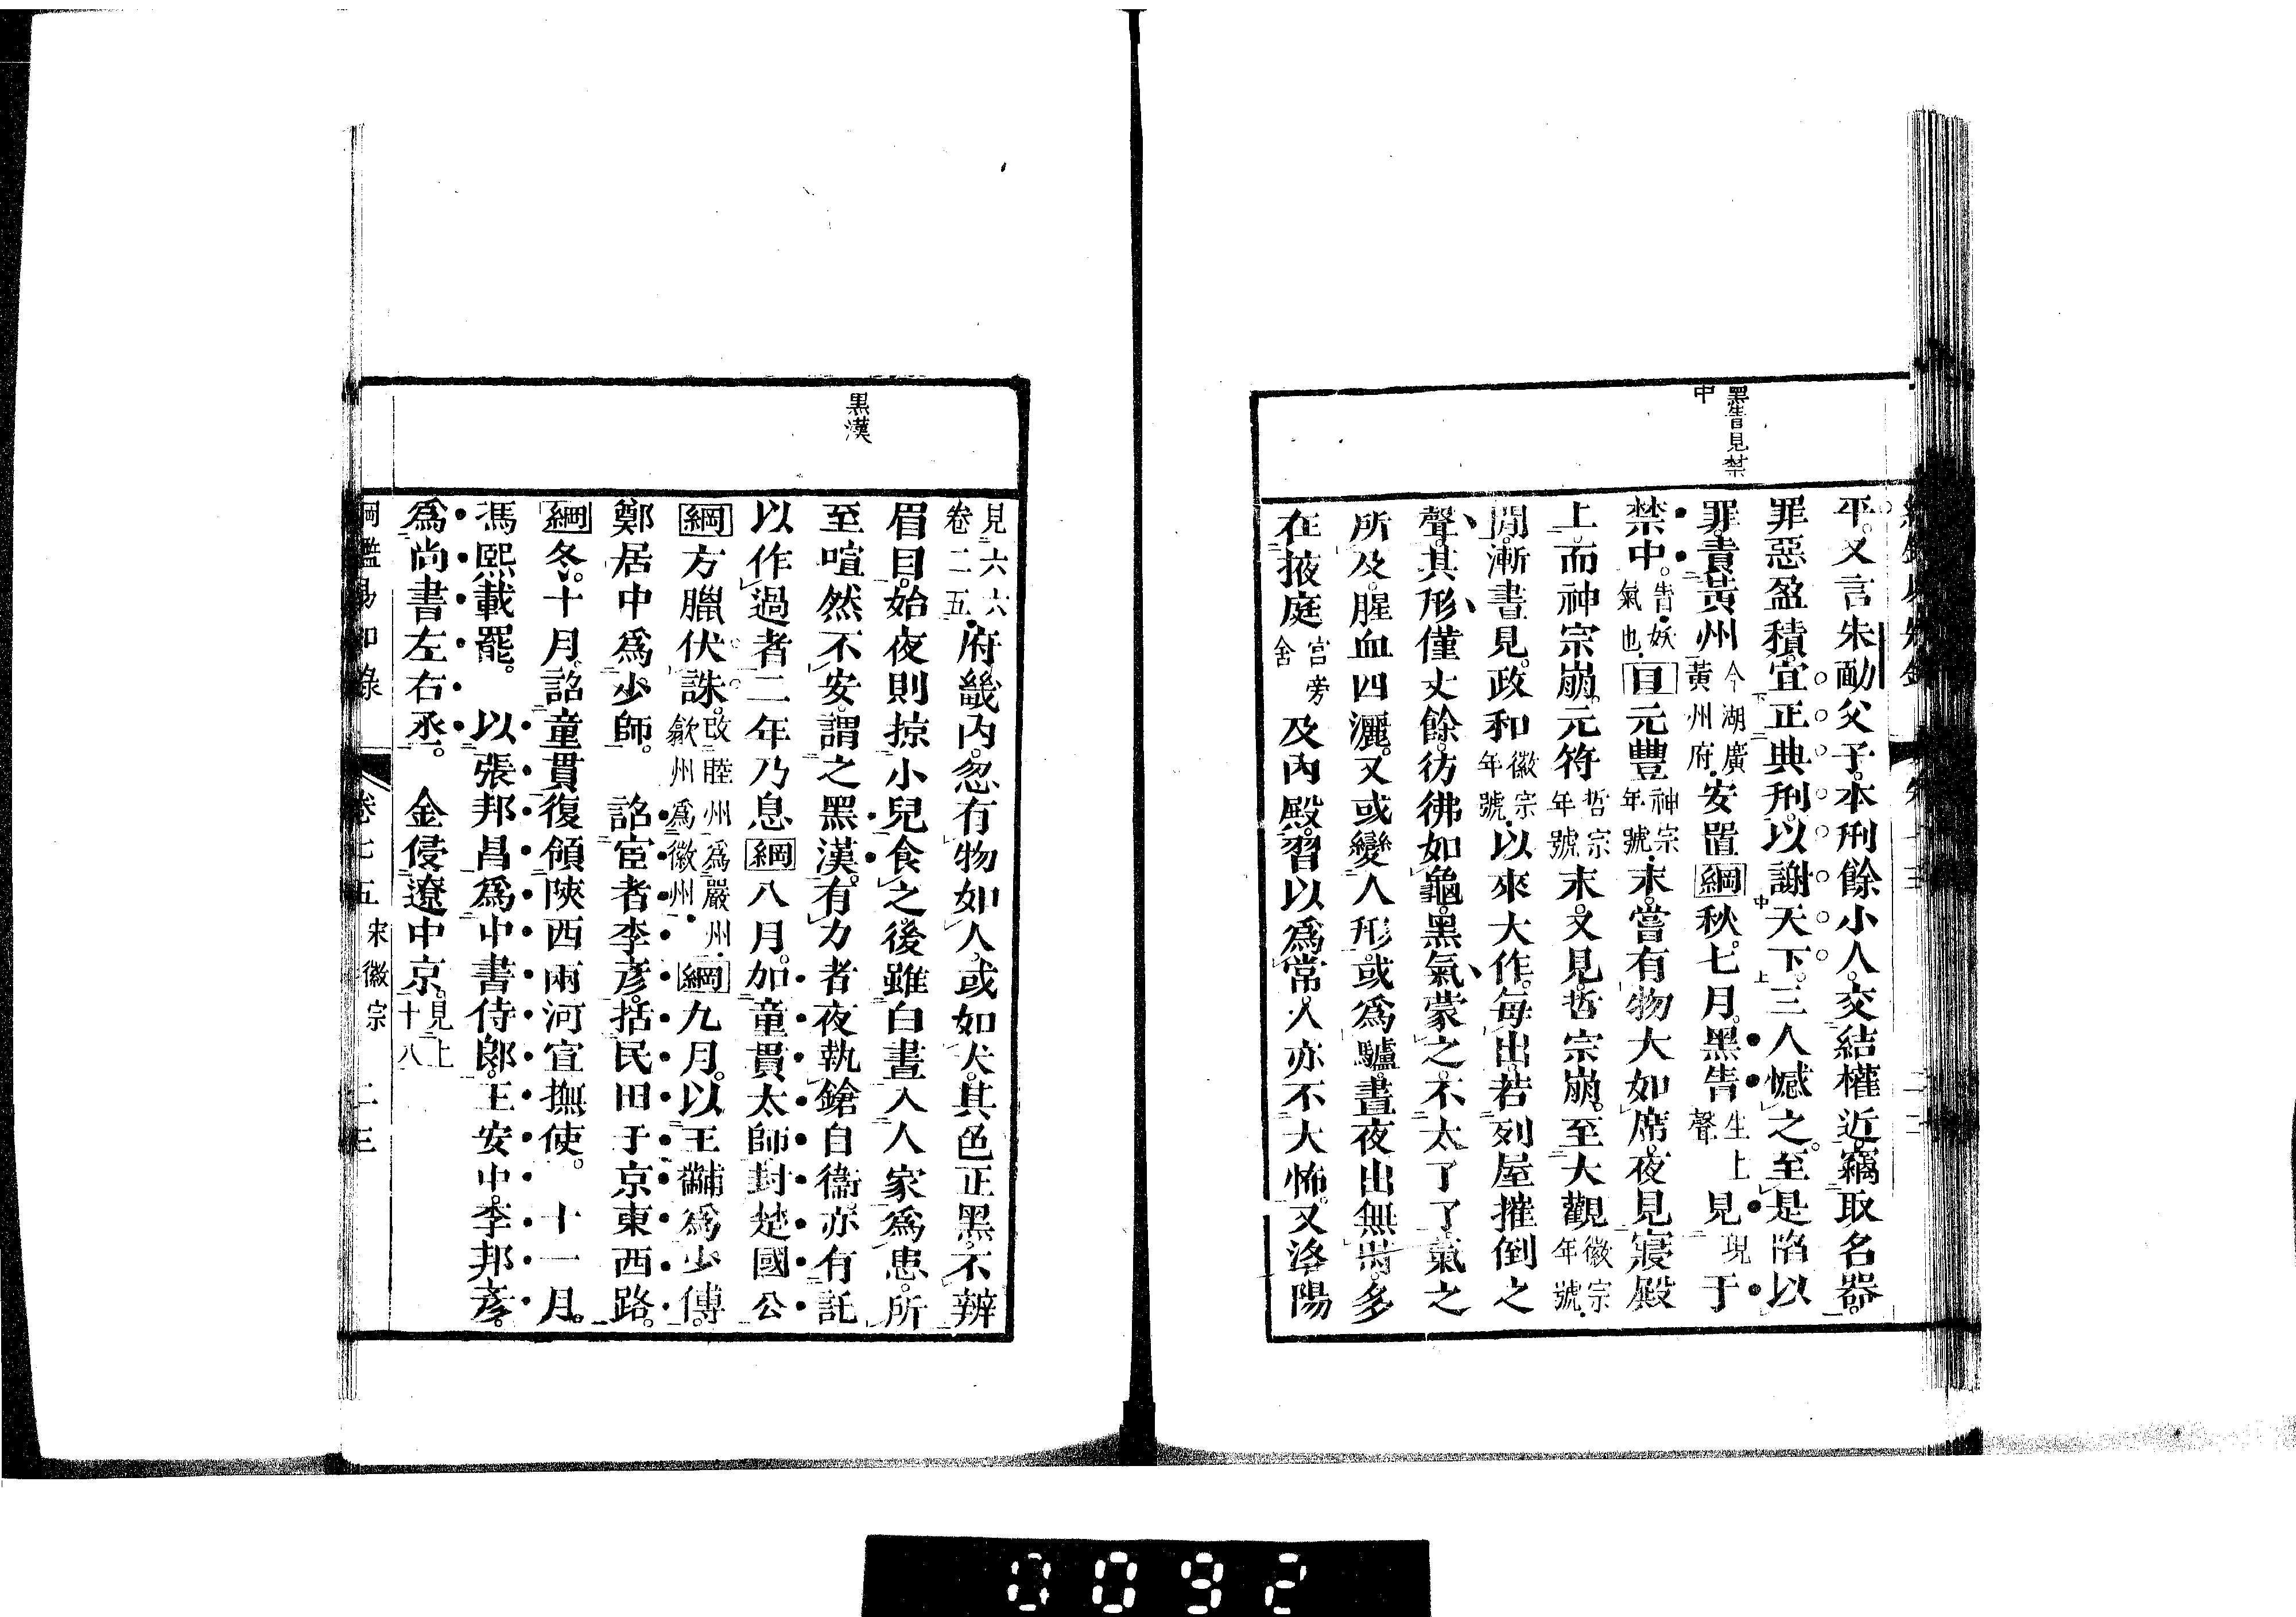 黑眚見禁
中
平。又言朱勔父子。本刑餘小人。交結權近。竊取名器。
罪惡盈積。宜正典刑。以謝天下。三人憾之。至是陷以
罪。責黃州今湖廣黃州府。安置綱秋七月。黑眚生上聲見現于
禁中。眚妖氣也。目元豐神宗年號末。嘗有物大如席。夜見寢殿
上。而神宗崩。元符哲宗年號末。又見。哲宗崩。至大觀徽宗年號。
間。漸晝見。政和徽宗年號。以來大作。每出。若列屋摧倒之
聲。其形僅丈餘。彷彿如龜。黑氣蒙之。不大了了。氣之
所及。腥血四灑。又或變人形。或爲驢。晝夜出無時。多
在掖庭宮旁舍及內殿。習以爲常。人亦不大怖。又洛陽
黒漢
見六六卷二五。府畿內。忽有物如人。或如犬。其色正黑。不辨
眉目。始夜則掠小兒食之。後雖白晝入人家爲患。所
至喧然不安。謂之黑漢。有力者夜執鎗自衞。亦有託
以作過者。二年乃息綱八月。加童貫太師封楚國公
綱方臘伏誅。改睦州爲嚴州。歙州爲徽州。綱九月。以王黼爲少傅。
鄭居中爲少師。 詔宦者李彥。括民田于京東西路。
綱冬。十月。詔童貫復領陝西兩河宣撫使。 十一月。
馮熙載罷。 以張邦昌爲中書侍郞。王安中。李邦彥。
爲尚書左右丞。 金侵遼中京。見上十八
綱鑑易知錄 卷七五 宋徽宗 二三
0092